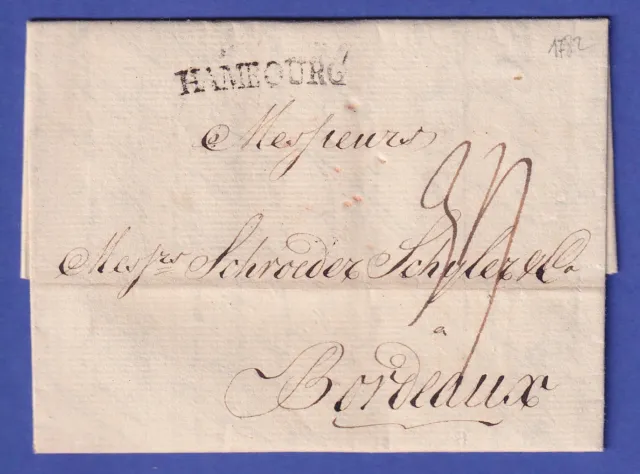 1782
HAMBOURG
Messieurs
Messrs Schroeder Schyler & Co
a
Bordeaux